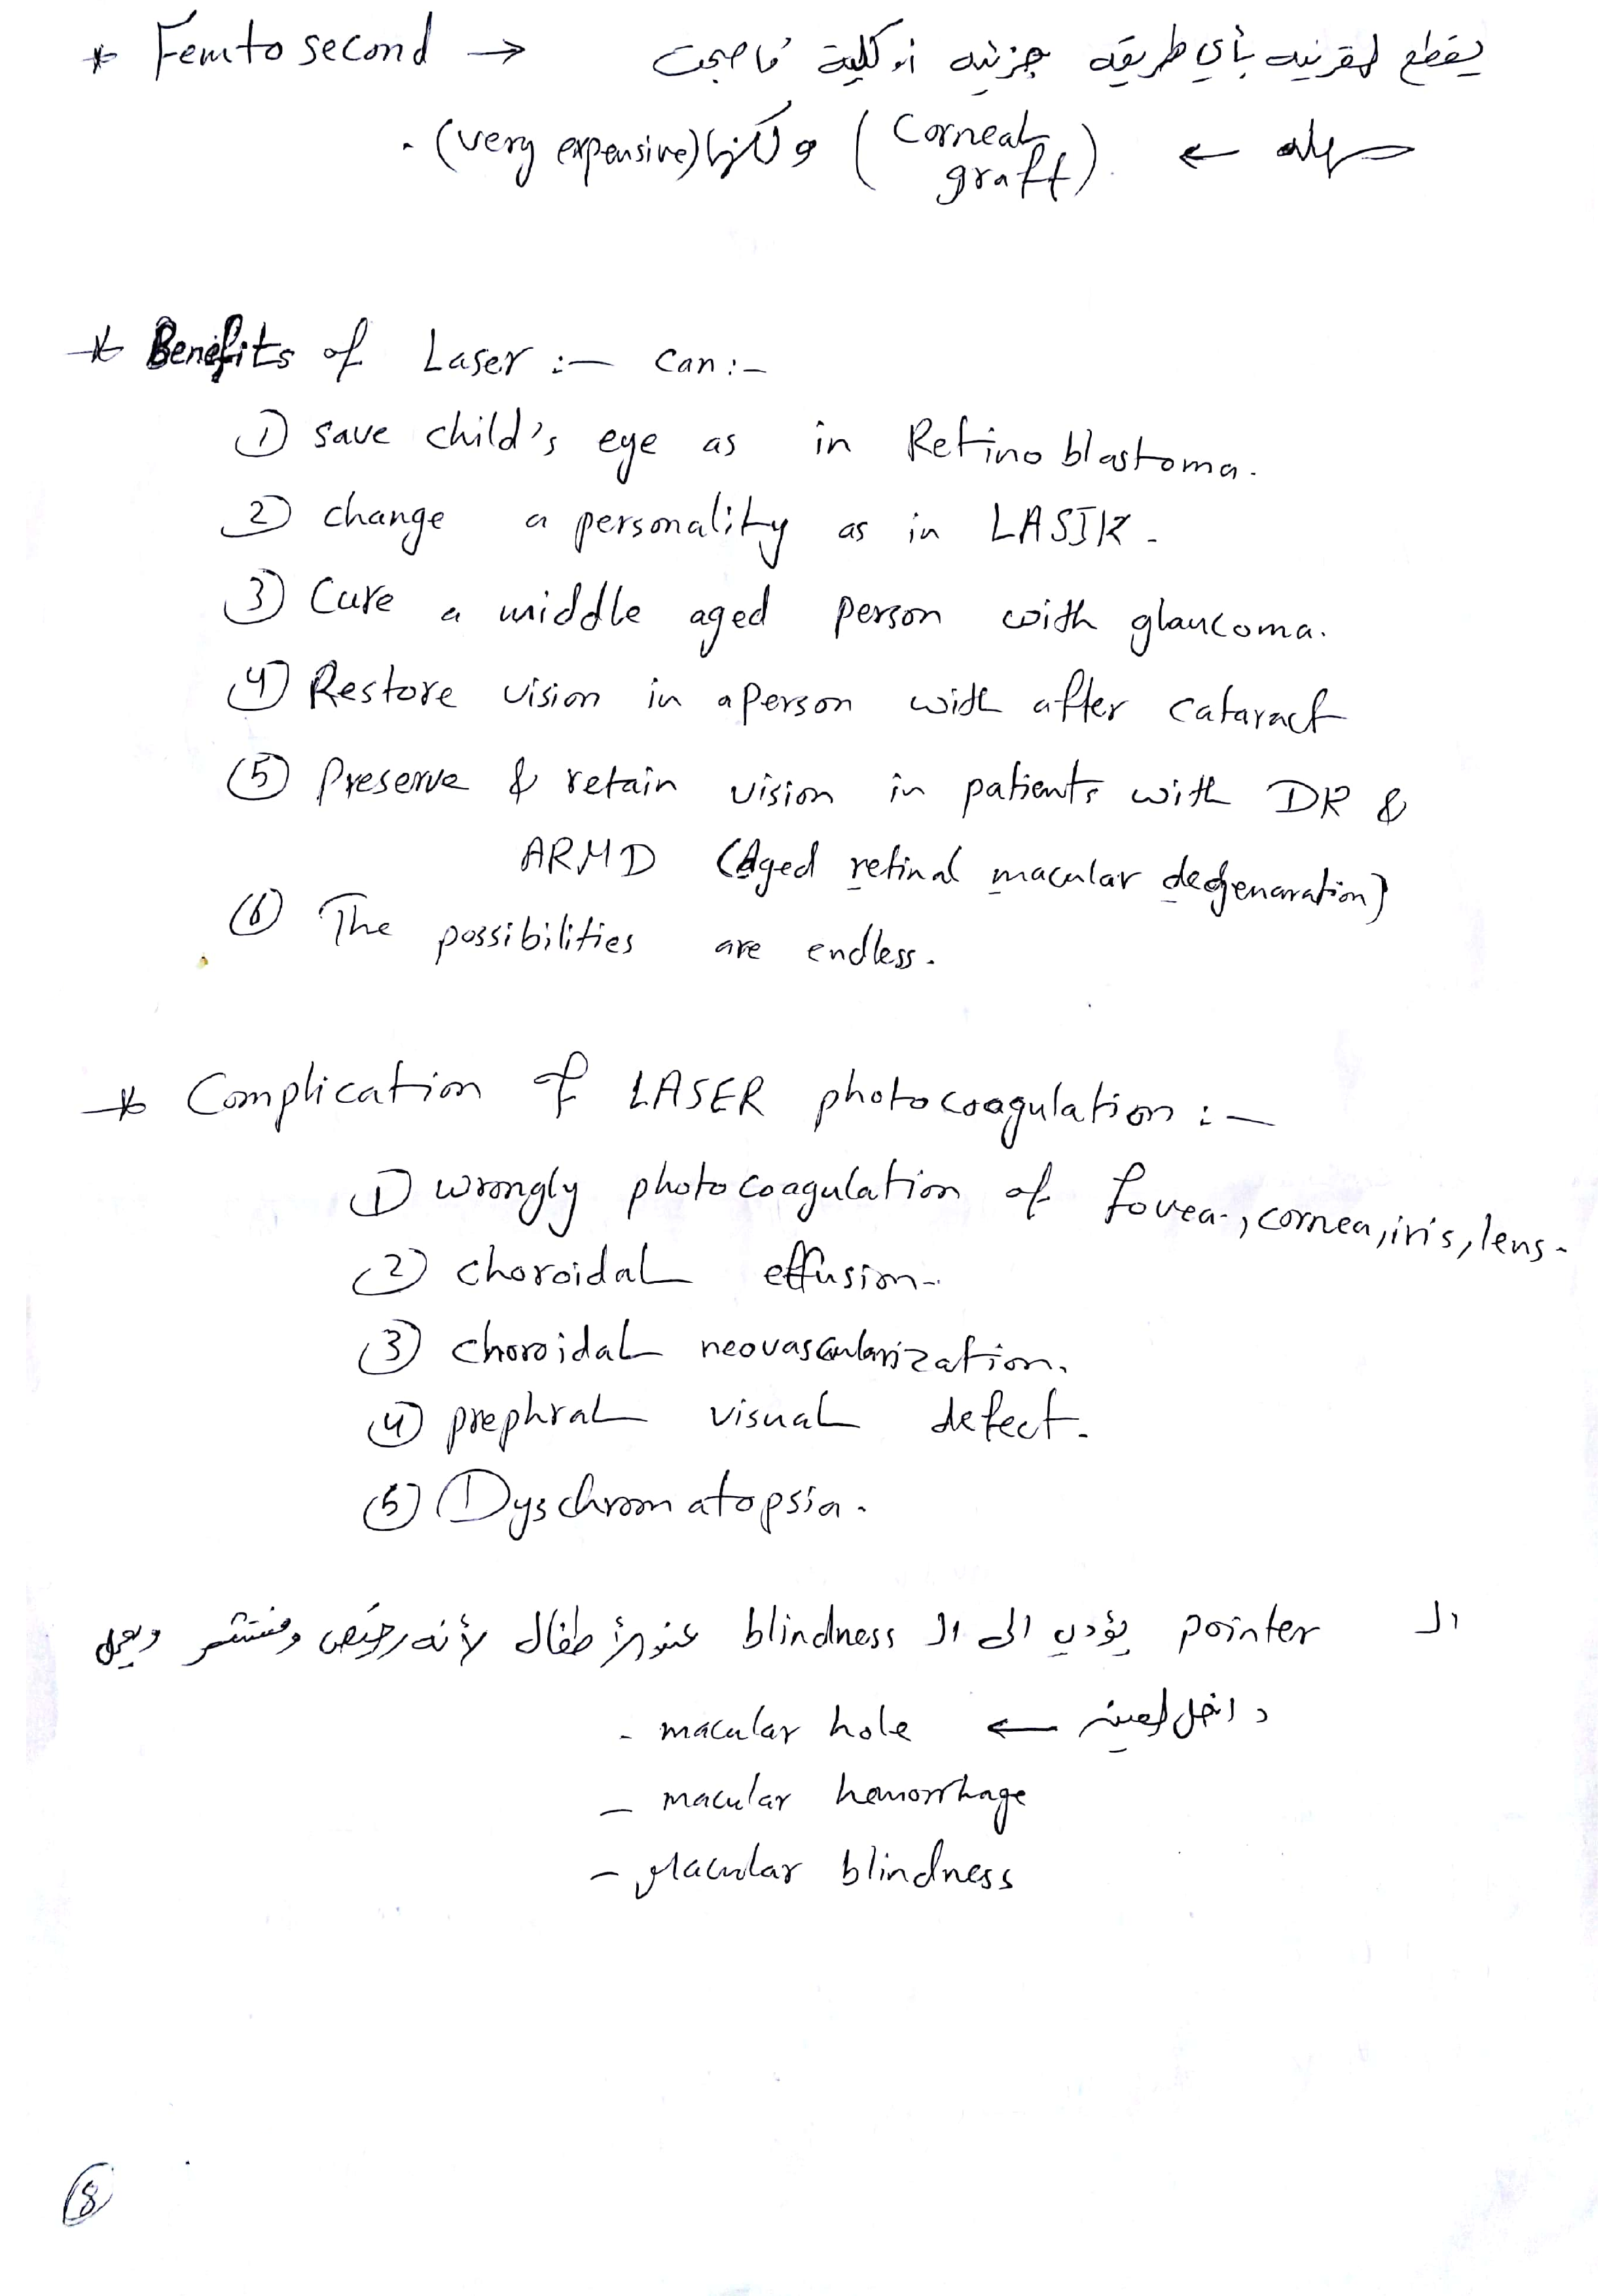 * Femto second → يقطع القرنيه بأي طريقه جزئيه أو كلية فاصبحت
سهله ← (Corneal graft) و لكنها (very expensive) .
* Benefits of Laser :– can :–
① save child's eye as in Retino blastoma.
② change a personality as in LASIK.
③ Cure a middle aged person with glaucoma.
④ Restore vision in a person with after cataract
⑤ Preserve & retain vision in patients with DR &
ARMD (Aged retinal macular dedgenaration)
⑥ The possibilities are endless.
* Complication of LASER photocoagulation :–
① wrongly photocoagulation of fovea, cornea, iris, lens.
② choroidal effusion.
③ choroidal neovascularization.
④ prephral visual defect.
⑤ Dyschromatopsia.
ال pointer يؤدي الى ال blindness عند الأطفال لأنه رخيص ومنتشر ويعمل
داخل العين ← - macular hole
- macular hemorrhage
- macular blindness
⑧